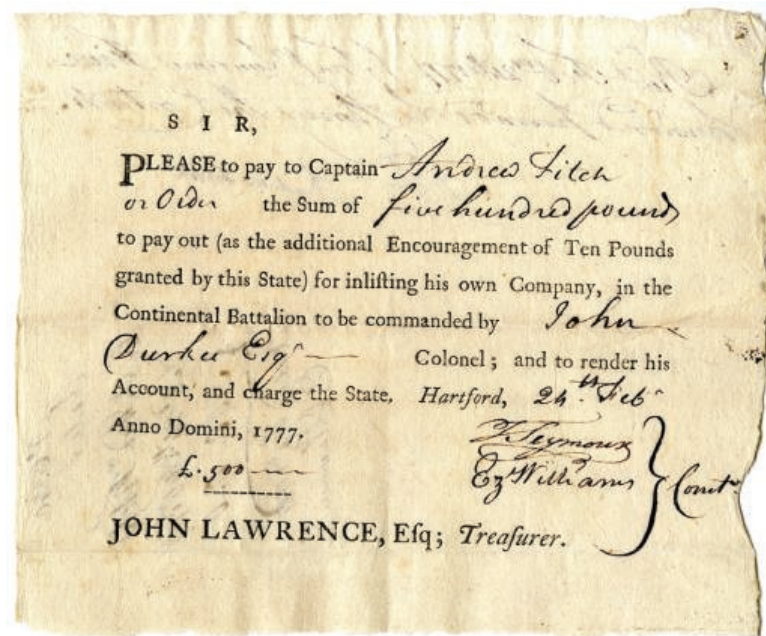 S I R,
PLEASE to pay to Captain Andrew Fitch
or Order the Sum of five hundred pounds
to pay out (as the additional Encouragement of Ten Pounds
granted by this State) for inliſting his own Company, in the
Continental Battalion to be commanded by John
Durkee Esqr Colonel; and to render his
Account, and charge the State. Hartford, 24th Feb
Anno Domini, 1777.
T Seymour
£.500
Ez Williams
Comtee
JOHN LAWRENCE, Eſq; Treaſurer.